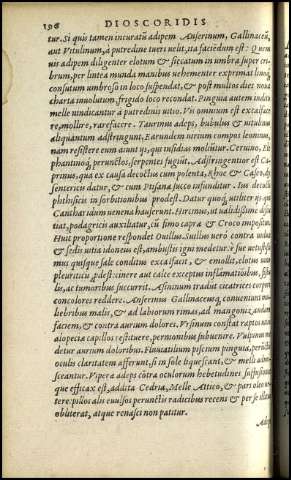 196 DIOSCORIDIS
tur. Si quis tamen incuratũ adipem Anserinum, Gallinaceũ,
aut Vitulinum, à putredine tueri uelit, ita faciẽdum est: Quem
uis adipem diligenter elotum & siccatum in umbra super cri
brum, per lintea munda manibus uehementer exprimat linoq́
consutum umbroso in loco suspendat, & post multos dies noua
charta inuolutum, frigido loco recondat. Pinguia autem indita
melle uindicantur à putredinis uitio. Vis omnium est excalface
re, mollire, rarefacere. Taurinus adeps, bubulus & uitulinus
aliquantum adstringunt. Earundem uirium compos leoninus,
nam resistere eum aiunt ijs, qui insidias moliũtur. Ceruino, Ele
phantinoq́; perunctos, serpentes fugiũt. Adstringentior est Ca
prinus, qua ex causa decoctus cum polenta, Rhoë & Caseo, dy
sentericis datur, & cum Ptisanæ succo infunditur. Ius decocti
phthisicis in sorbitionibus prodest. Datur quoq́; utiliter ijs qui
Cantharidum uenena hauserunt. Hircinus, ut ualidissime discu
tiat, podagricis auxiliatur, cũ fimo capræ & Croco impositus.
Huic proportione respondet Ouillus. Suillus uerò contra uuluæ
& sedis uitia idoneus est, ambustis igni medetur.
mus quisque sale conditus excalfacit, & emollit, elotus uino
pleuriticis
lis, ac tumoribus succurrit. Asininum tradut cicatrices corpori
concolores reddere. Anserinus Gallinaceusq́; conueniunt mu-
liebribus malis, & ad labiorum rimas, ad mangonizandam
faciem, & contra aurium dolores. Vrsinum constat raptos
alopecia capillos restituere, pernionibus subuenire. Vulpinus me
detur aurium doloribus. Fluuiatilium piscium pinguia,
oculis claritatem afferunt, si in sole liquescant, & melli admi-
sceantur. Viperæ adeps cõtra oculorum hebetudines suffusiones
que efficax est, addita Cedria, Melle Attico, & pari oleo ue-
tere. pillos alis euulsos perunctis radicibus recens & per se illitus
obliterat, atque renasci non patitur.